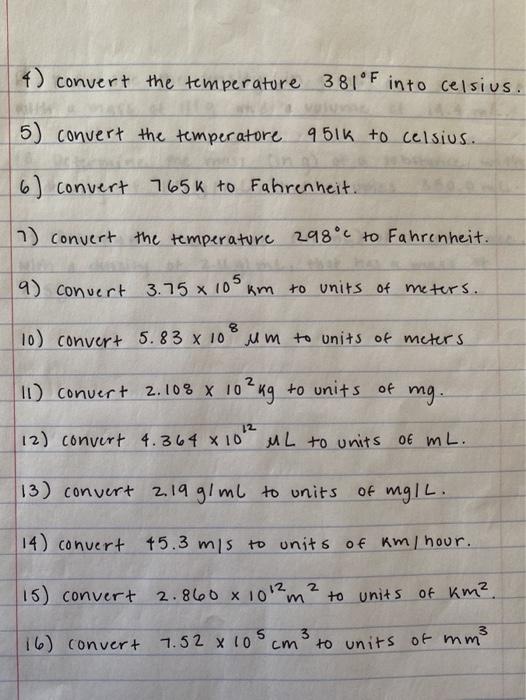 4) convert the temperature 381°F into celsius.
5) convert the temperatore 951K to celsius.
6) convert 765K to Fahrenheit.
7) convert the temperature 298°C to Fahrenheit.
9) convert 3.75 x 10⁵ km to units of meters.
10) convert 5.83 x 10⁸ μm to units of meters
11) convert 2.108 x 10² kg to units of mg.
12) convert 4.364 x 10¹² μL to units of mL.
13) convert 2.19 g/mL to units of mg/L.
14) convert 45.3 m/s to units of km/hour.
15) convert 2.860 x 10¹² m² to units of km².
16) convert 7.52 x 10⁵ cm³ to units of mm³